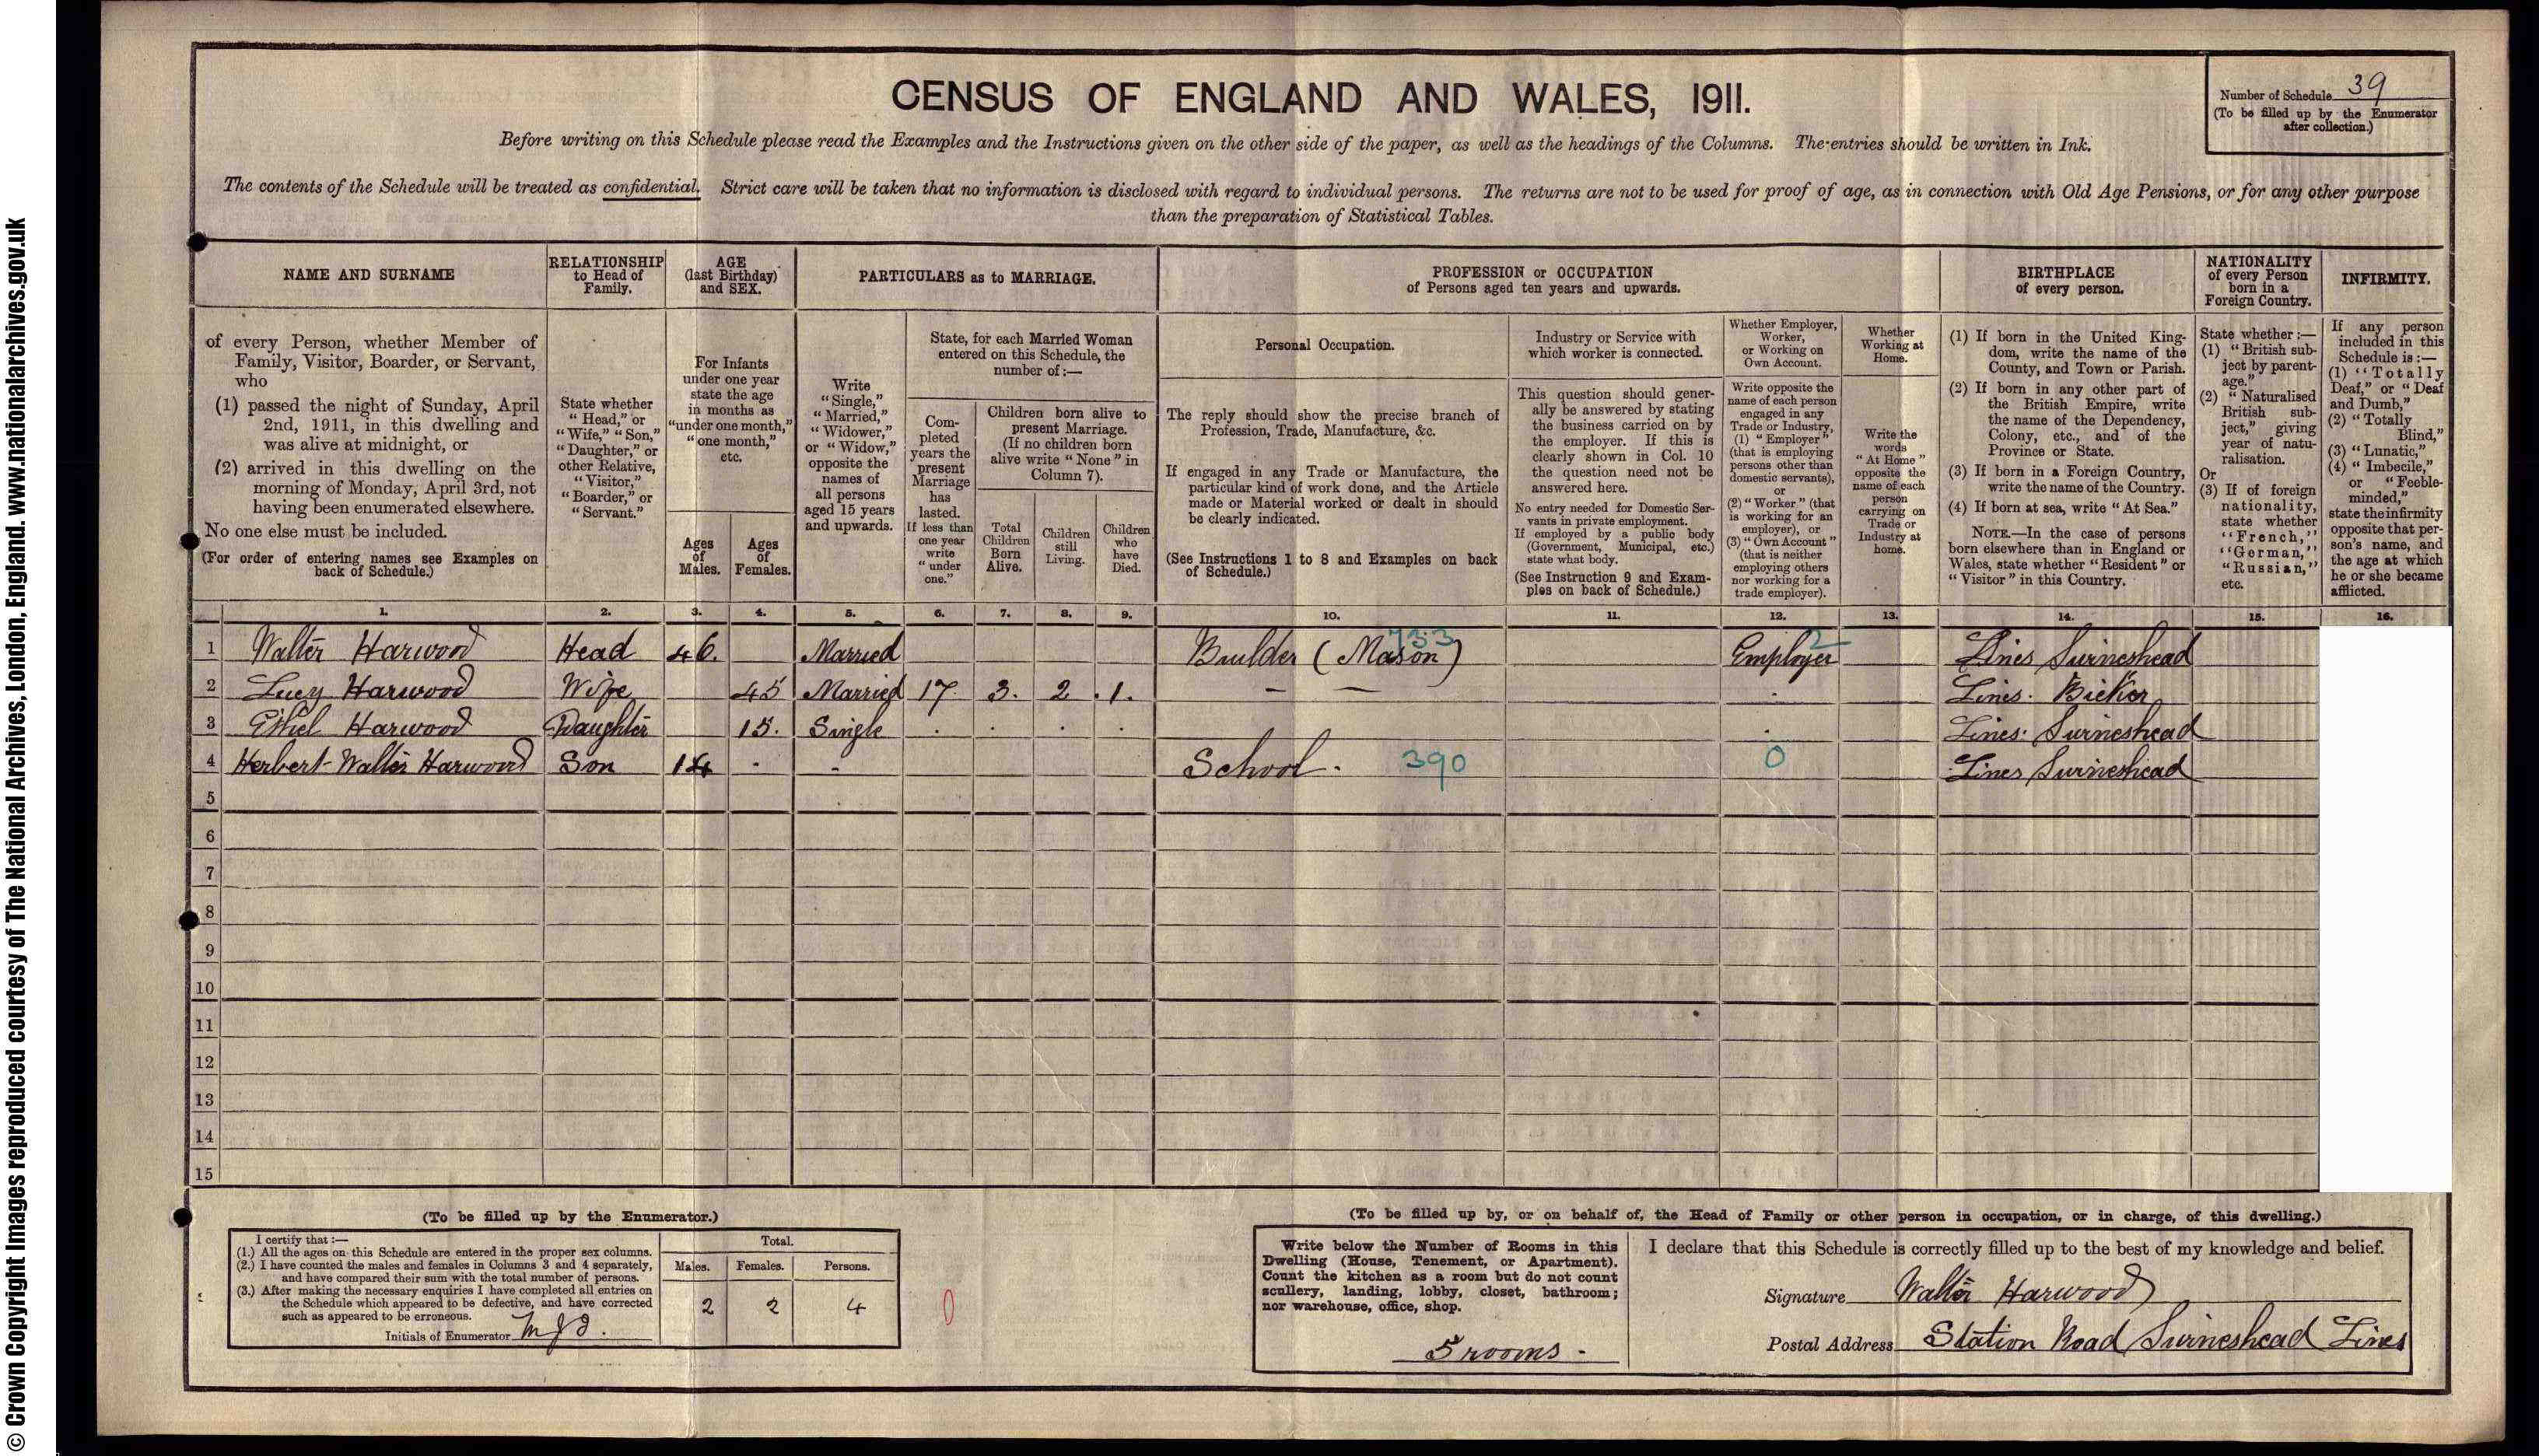 © Crown Copyright Images reproduced courtesy of The National Archives, London, England. www.nationalarchives.gov.uk
CENSUS OF ENGLAND AND WALES, 1911.
Number of Schedule 39
(To be filled up by the Enumerator
after collection.)
Before writing on this Schedule please read the Examples and the Instructions given on the other side of the paper, as well as the headings of the Columns. The entries should be written in Ink.
The contents of the Schedule will be treated as confidential. Strict care will be taken that no information is disclosed with regard to individual persons. The returns are not to be used for proof of age, as in connection with Old Age Pensions, or for any other purpose
than the preparation of Statistical Tables.
NAME AND SURNAME
of every Person, whether Member of
Family, Visitor, Boarder, or Servant,
who
(1) passed the night of Sunday, April
2nd, 1911, in this dwelling and
was alive at midnight, or
(2) arrived in this dwelling on the
morning of Monday, April 3rd, not
having been enumerated elsewhere.
No one else must be included.
(For order of entering names see Examples on
back of Schedule.)
RELATIONSHIP
to Head of
Family.
State whether
"Head," or
"Wife," "Son,"
"Daughter," or
other Relative,
"Visitor,"
"Boarder," or
"Servant."
AGE
(last Birthday)
and SEX.
For Infants
under one year
state the age
in months as
"under one month,"
"one month,"
etc.
Ages
of
Males.
Ages
of
Females.
PARTICULARS as to MARRIAGE.
Write
"Single,"
"Married,"
"Widower,"
or "Widow,"
opposite the
names of
all persons
aged 15 years
and upwards.
State, for each Married Woman
entered on this Schedule, the
number of:—
Com-
pleted
years the
present
Marriage
has
lasted.
If less than
one year
write
"under
one."
Children born alive to
present Marriage.
(If no children born
alive write "None" in
Column 7).
Total
Children
Born
Alive.
Children
still
Living.
Children
who
have
Died.
PROFESSION or OCCUPATION
of Persons aged ten years and upwards.
Personal Occupation.
The reply should show the precise branch of
Profession, Trade, Manufacture, &c.
If engaged in any Trade or Manufacture, the
particular kind of work done, and the Article
made or Material worked or dealt in should
be clearly indicated.
(See Instructions 1 to 8 and Examples on back
of Schedule.)
Industry or Service with
which worker is connected.
This question should gener-
ally be answered by stating
the business carried on by
the employer. If this is
clearly shown in Col. 10
the question need not be
answered here.
No entry needed for Domestic Ser-
vants in private employment.
If employed by a public body
(Government, Municipal, etc.)
state what body.
(See Instruction 9 and Exam-
ples on back of Schedule.)
Whether Employer,
Worker,
or Working on
Own Account.
Write opposite the
name of each person
engaged in any
Trade or Industry,
(1) "Employer"
(that is employing
persons other than
domestic servants),
or
(2) "Worker" (that
is working for an
employer), or
(3) "Own Account"
(that is neither
employing others
nor working for a
trade employer).
Whether
Working at
Home.
Write the
words
"At Home"
opposite the
name of each
person
carrying on
Trade or
Industry at
home.
BIRTHPLACE
of every person.
(1) If born in the United King-
dom, write the name of the
County, and Town or Parish.
(2) If born in any other part of
the British Empire, write
the name of the Dependency,
Colony, etc., and of the
Province or State.
(3) If born in a Foreign Country,
write the name of the Country.
(4) If born at sea, write "At Sea."
NOTE.—In the case of persons
born elsewhere than in England or
Wales, state whether "Resident" or
"Visitor" in this Country.
NATIONALITY
of every Person
born in a
Foreign Country.
State whether:—
(1) "British sub-
ject by parent-
age."
(2) "Naturalised
British sub-
ject," giving
year of natu-
ralisation.
Or
(3) If of foreign
nationality,
state whether
"French,"
"German,"
"Russian,"
etc.
INFIRMITY.
If any person
included in this
Schedule is:—
(1) "Totally
Deaf," or "Deaf
and Dumb,"
(2) "Totally
Blind,"
(3) "Lunatic,"
(4) "Imbecile,"
or "Feeble-
minded,"
state the infirmity
opposite that per-
son's name, and
the age at which
he or she became
afflicted.
1. 2. 3. 4. 5. 6. 7. 8. 9. 10. 11. 12. 13. 14. 15. 16.
1 Walter Harwood Head 46. Married Builder (Mason) 733 Employer 2 Lincs Surneshead
2 Lucy Harwood Wife 45 Married 17. 3. 2 . 1. — — Lincs. Bicker
3 Ethel Harwood Daughter 15. Single . . . . Lincs. Surneshead
4 Herbert Walter Harwood Son 14 - - School. 390 0 Lincs Surneshead
5
6
7
8
9
10
11
12
13
14
15
(To be filled up by the Enumerator.)
I certify that:—
(1.) All the ages on this Schedule are entered in the proper sex columns.
(2.) I have counted the males and females in Columns 3 and 4 separately,
and have compared their sum with the total number of persons.
(3.) After making the necessary enquiries I have completed all entries on
the Schedule which appeared to be defective, and have corrected
such as appeared to be erroneous.
Initials of Enumerator
Total.
Males. Females. Persons.
2 2 4
0
(To be filled up by, or on behalf of, the Head of Family or other person in occupation, or in charge, of this dwelling.)
Write below the Number of Rooms in this
Dwelling (House, Tenement, or Apartment).
Count the kitchen as a room but do not count
scullery, landing, lobby, closet, bathroom;
nor warehouse, office, shop.
5 rooms -
I declare that this Schedule is correctly filled up to the best of my knowledge and belief.
Signature Walter Harwood
Postal Address Station Road Surneshead Lincs